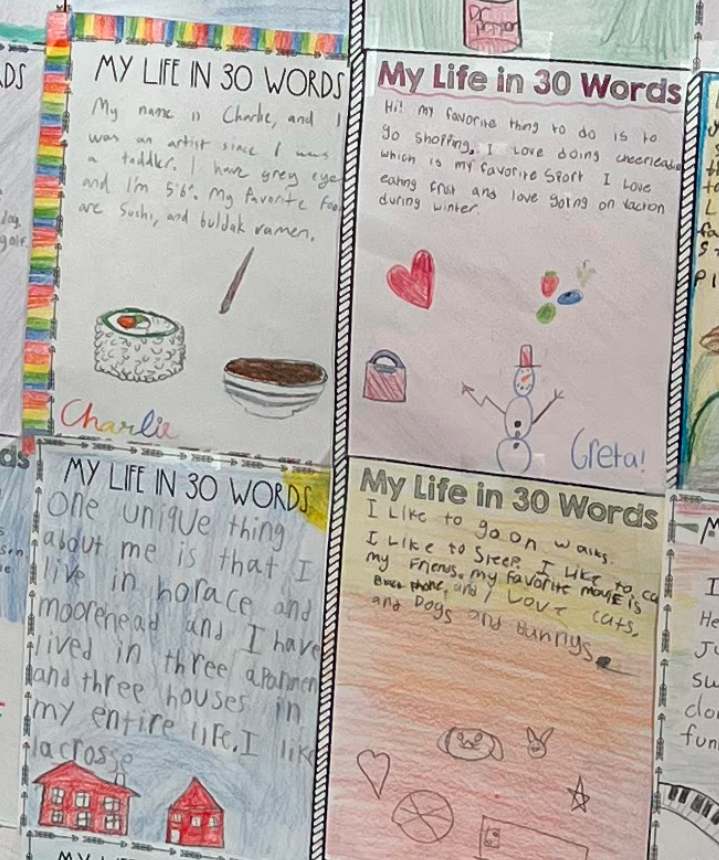 Dr
Pepper
DS
MY LIFE IN 30 WORDS
My name is Charlie, and I
was an artist since I was
a toddler. I have grey eye
and I'm 5'6". My favorite foo
are Sushi, and buldak ramen.
Charlie
My Life in 30 Words
Hi! my favorite thing to do is to
go shopping. I Love doing cheerleadi
which is my favorite Sport I Love
eating fruit and love going on vaction
during winter.
Greta!
dog
golf.
ds
MY LIFE IN 30 WORDS
One unique thing
about me is that I
live in horace and
moorehead and I have
lived in three aparmen
and three houses in
my entire life. I like
lacrosse
My Life in 30 Words
I Like to go on walks.
I Like to Sleep. I Like to ca
my Friends. my favorite movie is
phone, and I Love cats,
and Dogs and Bunnys
M
I
He
Ju
su
clo
fun
MY LIFE